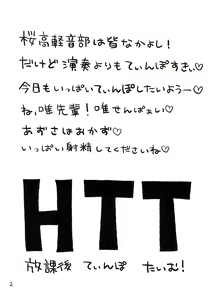 桜高軽音部は皆なかよし!
だけど演奏よりもてぃんぽすきぃ♡
今日もいっぱいてぃんぽしたいようー♡
ね,唯先輩!唯せんぱぁい♡
あずさはおかず♡
いっぱい射精してくださいね♡
HTT
放課後 てぃんぽ たいむ!
2